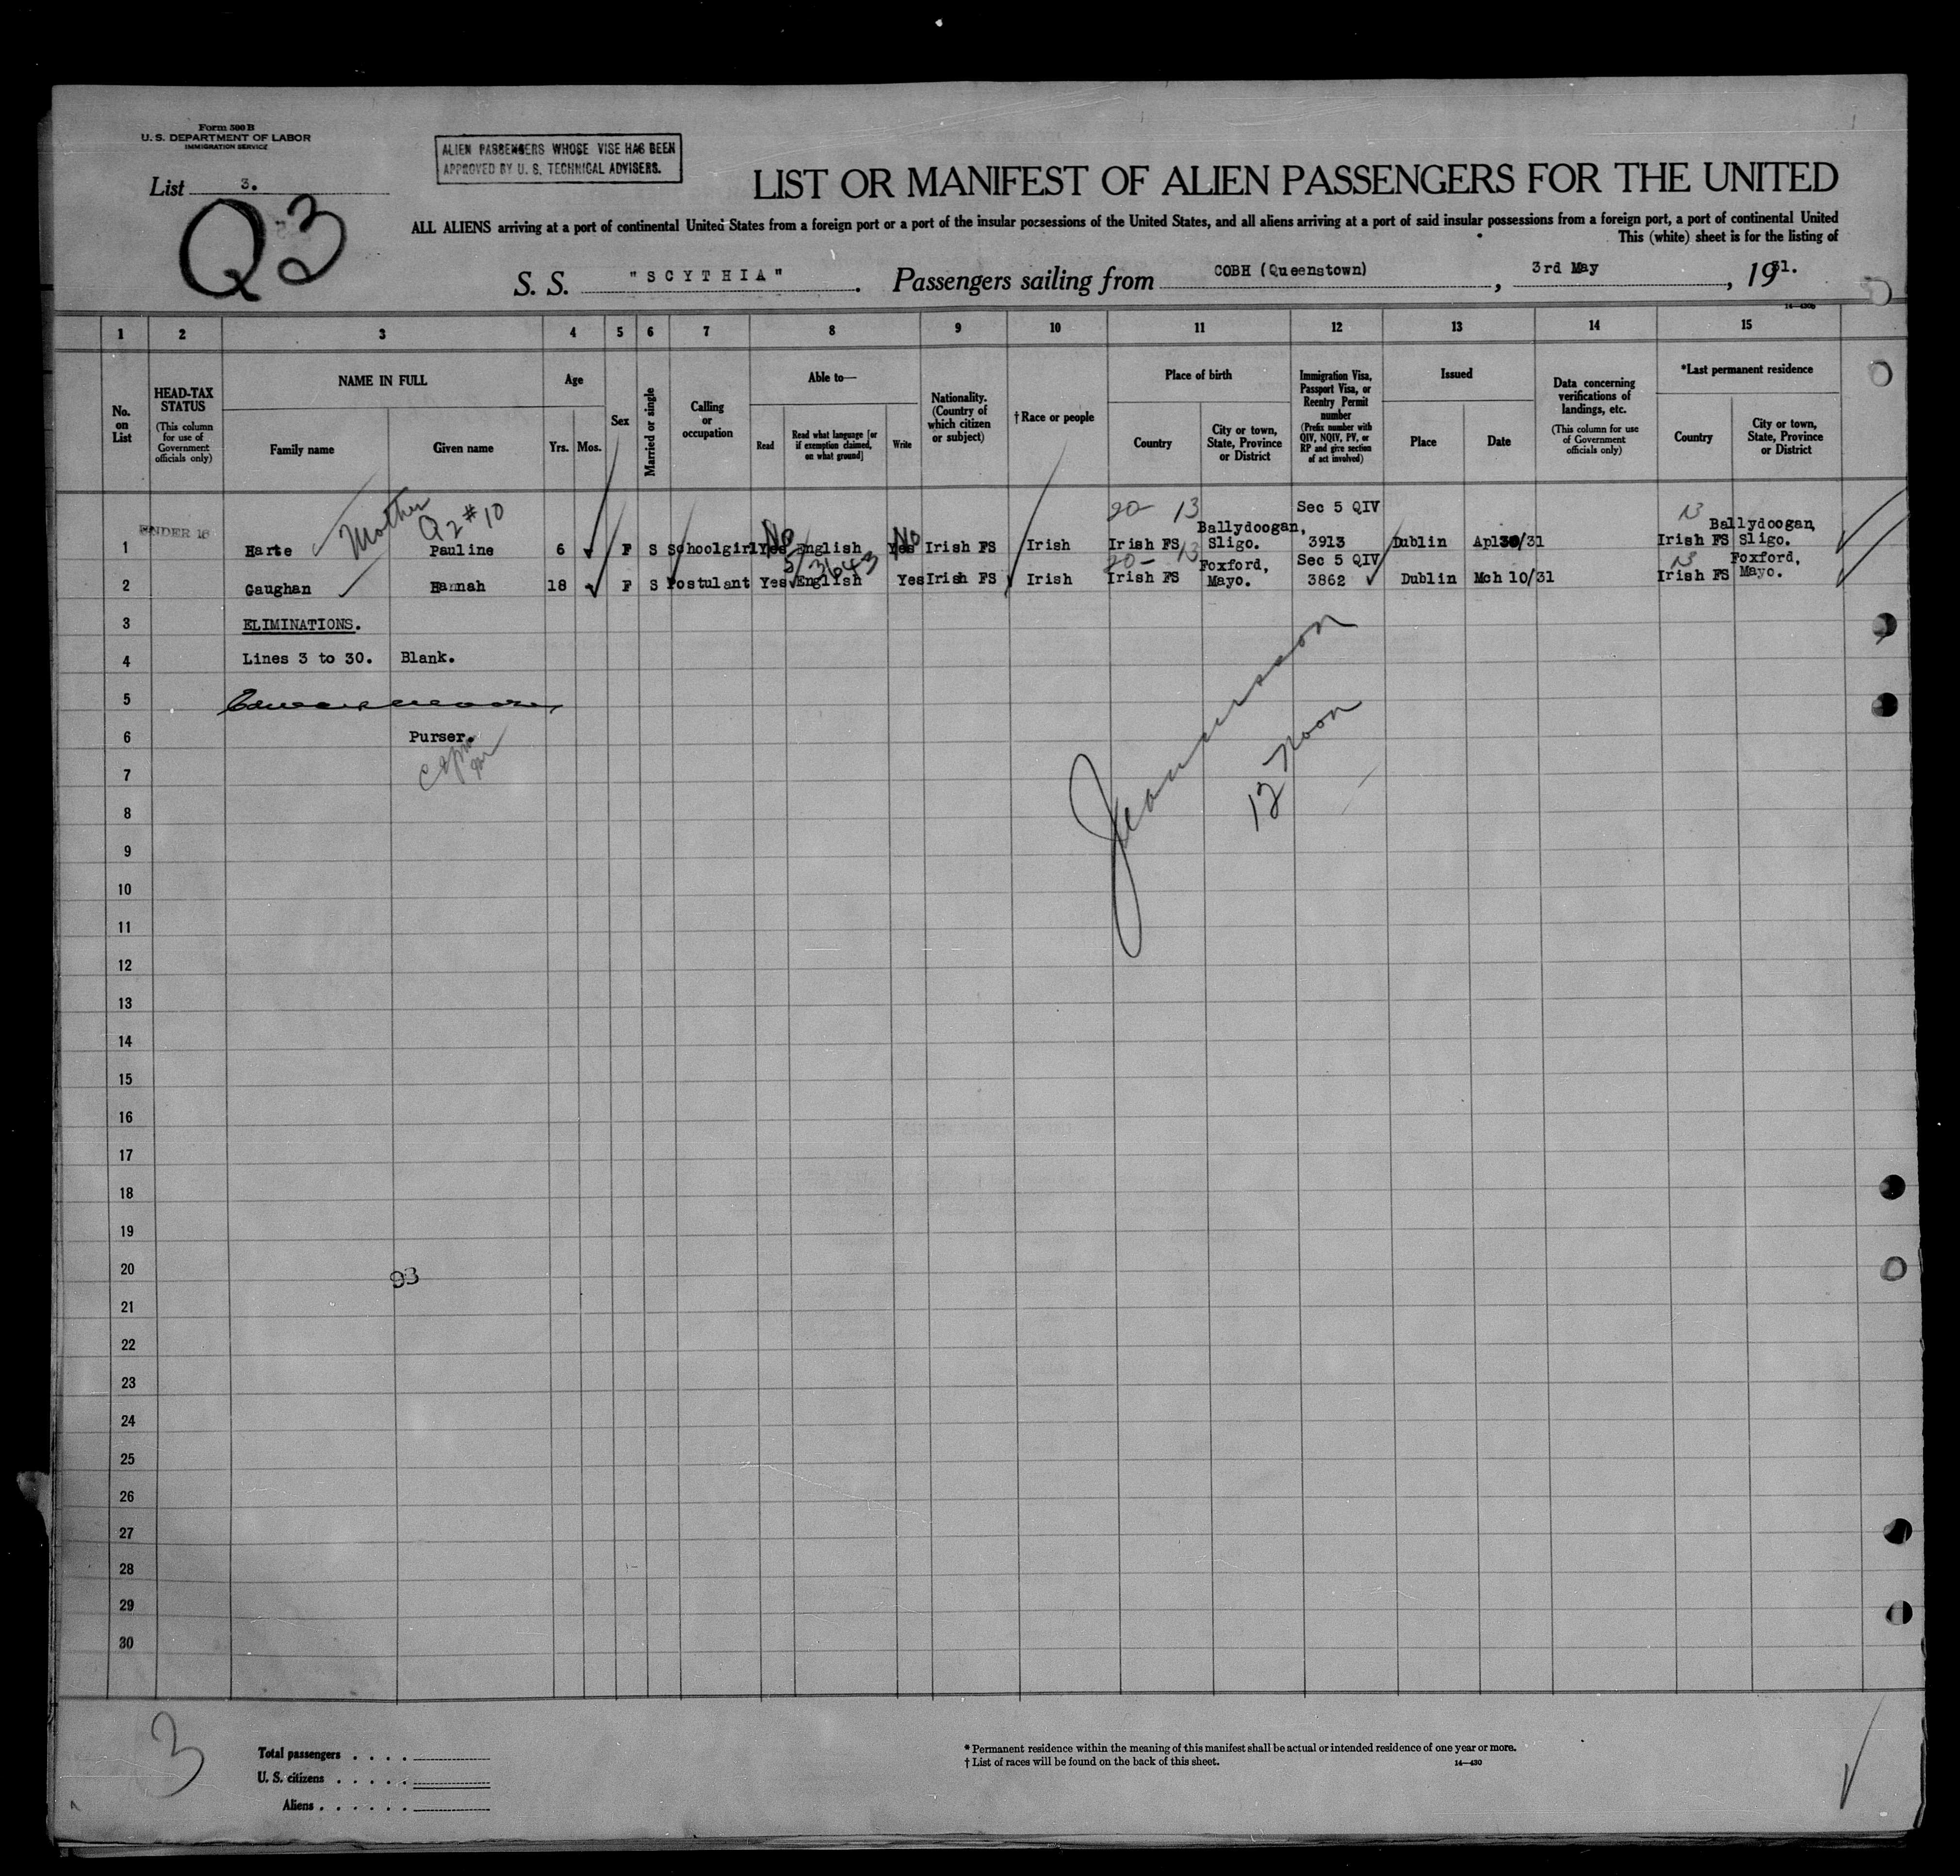 Form 500 B
U. S. DEPARTMENT OF LABOR
IMMIGRATION SERVICE
ALIEN PASSENGERS WHOSE VISE HAS BEEN
APPROVED BY U. S. TECHNICAL ADVISERS.
List 3.
Q3
LIST OR MANIFEST OF ALIEN PASSENGERS FOR THE UNITED
ALL ALIENS arriving at a port of continental United States from a foreign port or a port of the insular possessions of the United States, and all aliens arriving at a port of said insular possessions from a foreign port, a port of continental United
This (white) sheet is for the listing of
S. S. "SCYTHIA". Passengers sailing from COBH (Queenstown), 3rd May, 1931.
1 2 3 4 5 6 7 8 9 10 11 12 13 14 15
No. on List
HEAD-TAX STATUS (This column for use of Government officials only)
NAME IN FULL
Family name Given name
Age
Yrs. Mos.
Sex
Married or single
Calling or occupation
Able to—
Read Read what language [or if exemption claimed, on what ground] Write
Nationality. (Country of which citizen or subject)
† Race or people
Place of birth
Country City or town, State, Province or District
Immigration Visa, Passport Visa, or Reentry Permit number (Prefix number with QIV, NQIV, PV, or RP and give section of act involved)
Issued
Place Date
Data concerning verifications of landings, etc. (This column for use of Government officials only)
*Last permanent residence
Country City or town, State, Province or District
UNDER 16 Mother Q2 #10 No No 20- 13 Sec 5 QIV 13
1 Harte Pauline 6 F S Schoolgirl Yes English Yes Irish FS Irish Irish FS Ballydoogan, Sligo. 3913 Dublin Apl 30/31 Irish FS Ballydoogan, Sligo.
20- 13 Sec 5 QIV 13
2 Gaughan Hannah 18 F S Postulant Yes English Yes Irish FS Irish Irish FS Foxford, Mayo. 3862 Dublin Mch 10/31 Irish FS Foxford, Mayo.
3 ELIMINATIONS.
4 Lines 3 to 30. Blank.
5
6 Purser.
12 noon
7
8
9
10
11
12
13
14
15
16
17
18
19
20
93
21
22
23
24
25
26
27
28
29
30
3
Total passengers . . . .
U. S. citizens . . . . .
Aliens . . . . . .
* Permanent residence within the meaning of this manifest shall be actual or intended residence of one year or more.
† List of races will be found on the back of this sheet.
14—430